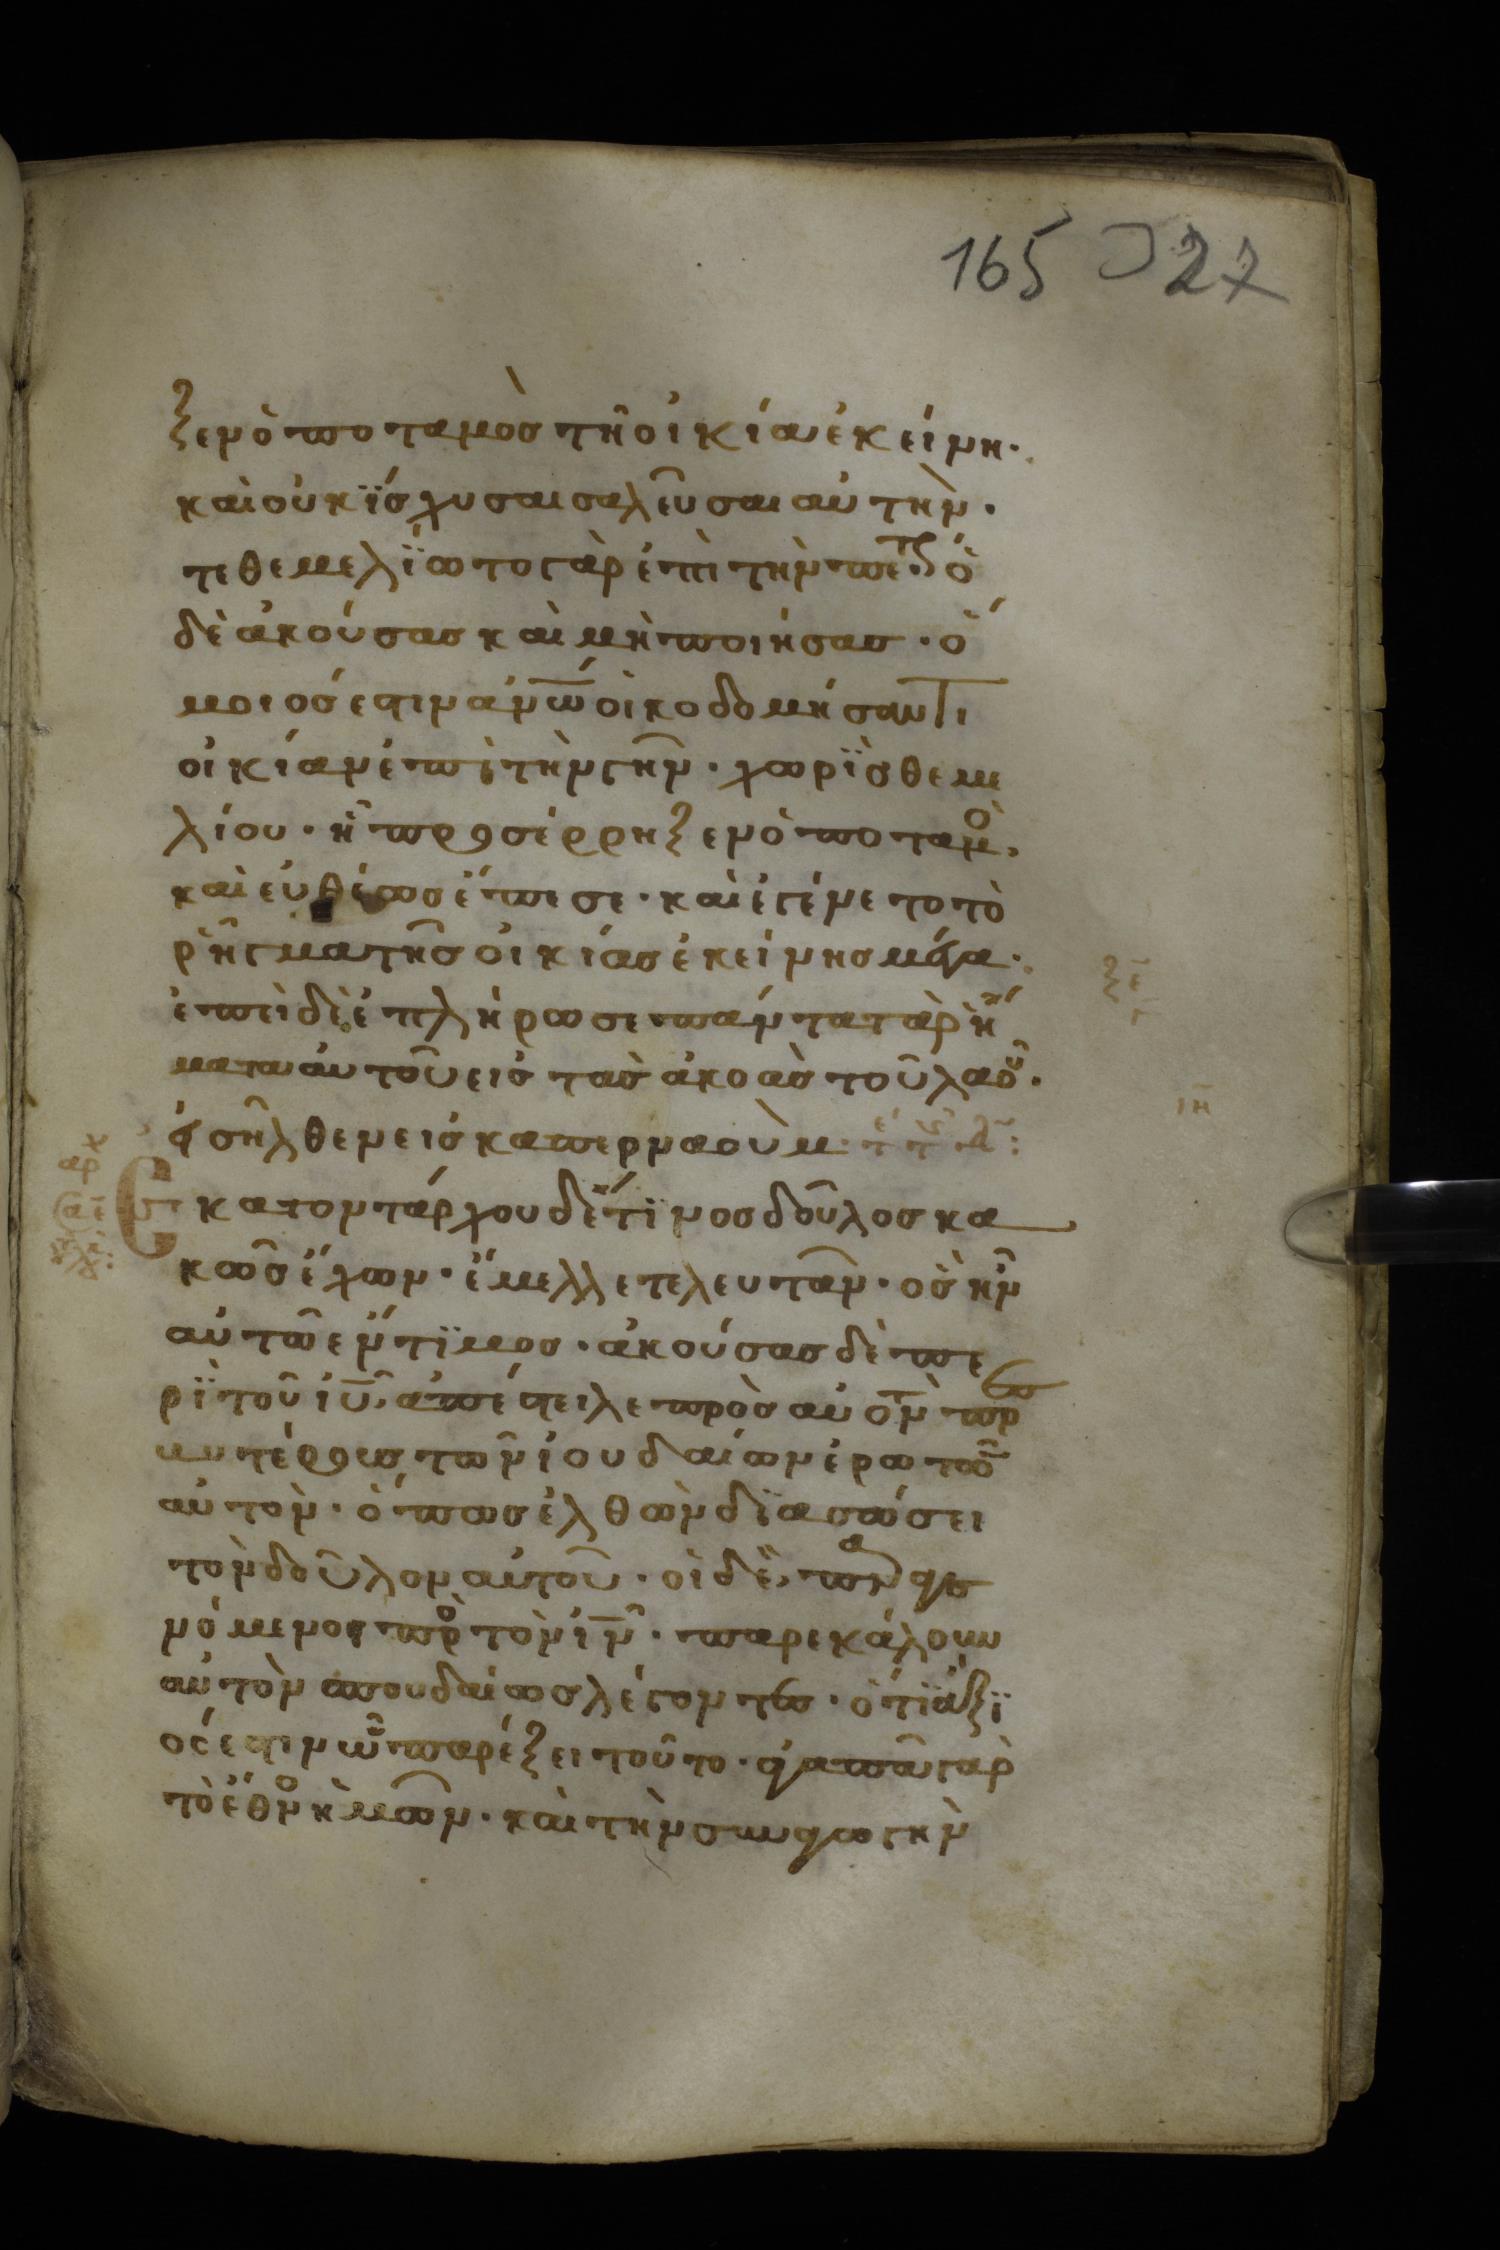 165 27
ξεν ὁ ποταμὸς τῆ οἰκία ἐκείνη·
καὶ οὐκ ἴσχυσαι σαλεῦσαι αὐτὴν·
τεθεμελΐωτο γὰρ ἐπὶ τὴν πέτρ ὁ
δὲ ἀκούσας καὶ μὴ ποιήσας· ὅ
μοιός ἐστιν ἀν̅ω̅ οἰκοδομήσαντι
οἰκίαν ἐπὶ τὴν γῆν· χωρῒς θεμε
λίου· ἧ προσέρρηξεν ὁ ποταμὸ,
καὶ εὐθέως ἔπεσε· καὶ ἐγένετο τὸ
ῥῆγμα τῆς οἰκίας ἐκείνης μέγα·
ἐπεὶ δὲ ἐπλήρωσε πάντα τὰ ῥή
ματα αὐτοῦ εἰς τὰς ἀκοὰς τοῦ λαοῦ·
εἰσῆλθεν εἰς καπερναοὺμ·
ξε
γ
ιη
Εκατοντάρχου δέ τϊνος δοῦλος κα
κῶς ἔχων· ἔμελλε τελευτᾶν· ὃς ἦν
αὐτῶ ἔντϊμος· ἀκούσας δὲ πε
ρῒ τοῦ ι̅υ̅, ἀπέστειλε πρὸς αὐτὸν πρε
σβυτέρους τῶν ἰουδαίων ἐρωτῶ
αὐτὸν· ὅπως ἐλθὼν δϊασώσει
τὸν δοῦλον αὐτοῦ· οἱ δὲ, παραγε
νόμενοι πρὸ τὸν ι̅ν̅· παρεκάλουν
αὐτὸν σπουδαίως λέγοντες· ὅτϊ ἄξϊ
ός ἐστιν ὧ παρέξει τοῦτο· ἀγαπᾶ γὰρ
τὸ ἔθνο ἡμῶν· καὶ τὴν συναγωγὴν